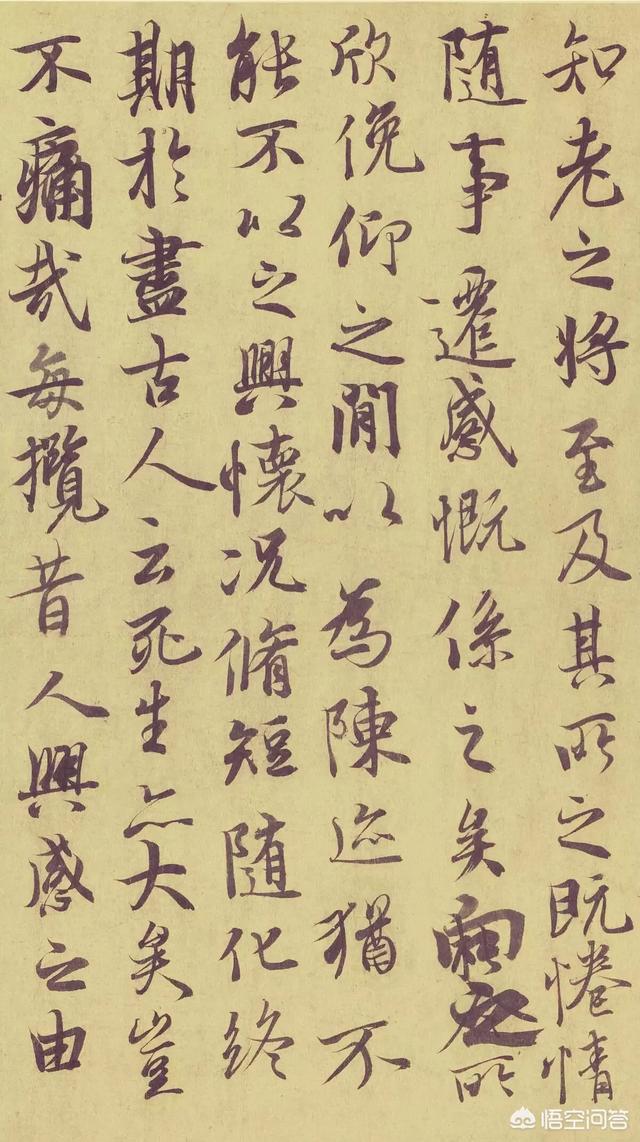 知老之将至及其所之既惓情
随事遷感慨係之矣向之所
欣俛仰之閒以為陳迹猶不
能不以之興懷况脩短随化終
期於盡古人云死生亦大矣豈
不痛哉每攬昔人興感之由
悟空问答